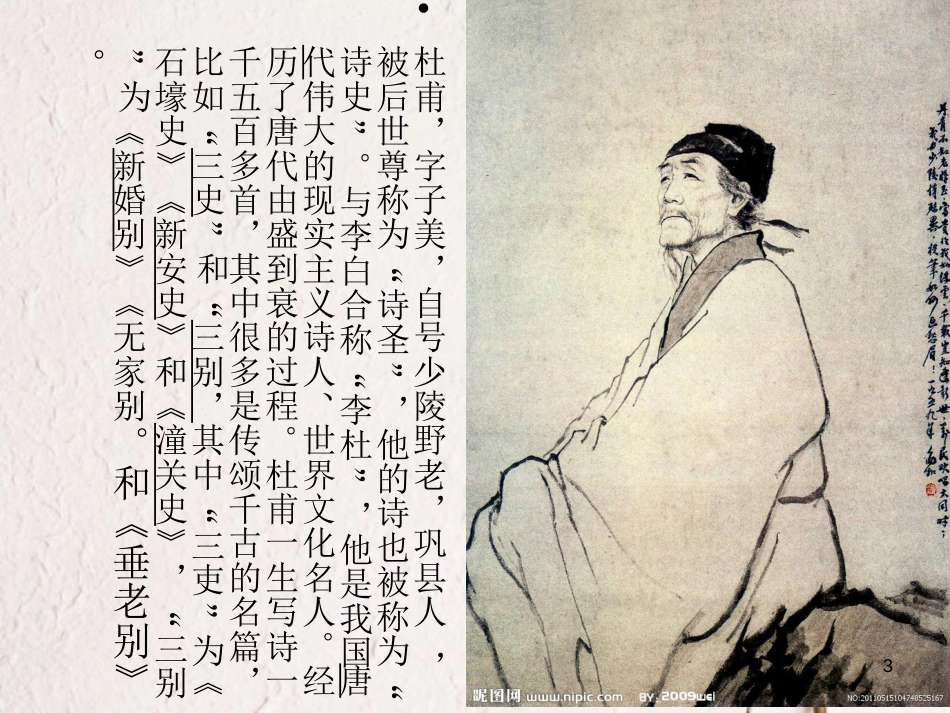 •
杜甫，字子美，自号少陵野老，巩县人，
被后世尊称为“诗圣”，他的诗也被称为“
诗史”。与李白合称“李杜”，他是我国唐
代伟大的现实主义诗人、世界文化名人。经
历了唐代由盛到衰的过程。杜甫一生写诗一
千五百多首，其中很多是传颂千古的名篇，
比如“三史”和“三别，其中“三吏”为《
石壕史》《新安史》和《潼关史》，“三别
”为《新婚别》《无家别。和《垂老别》
。
3
昵图网 www.nipic.com BY: 2009wei
NO:20110515104748525167